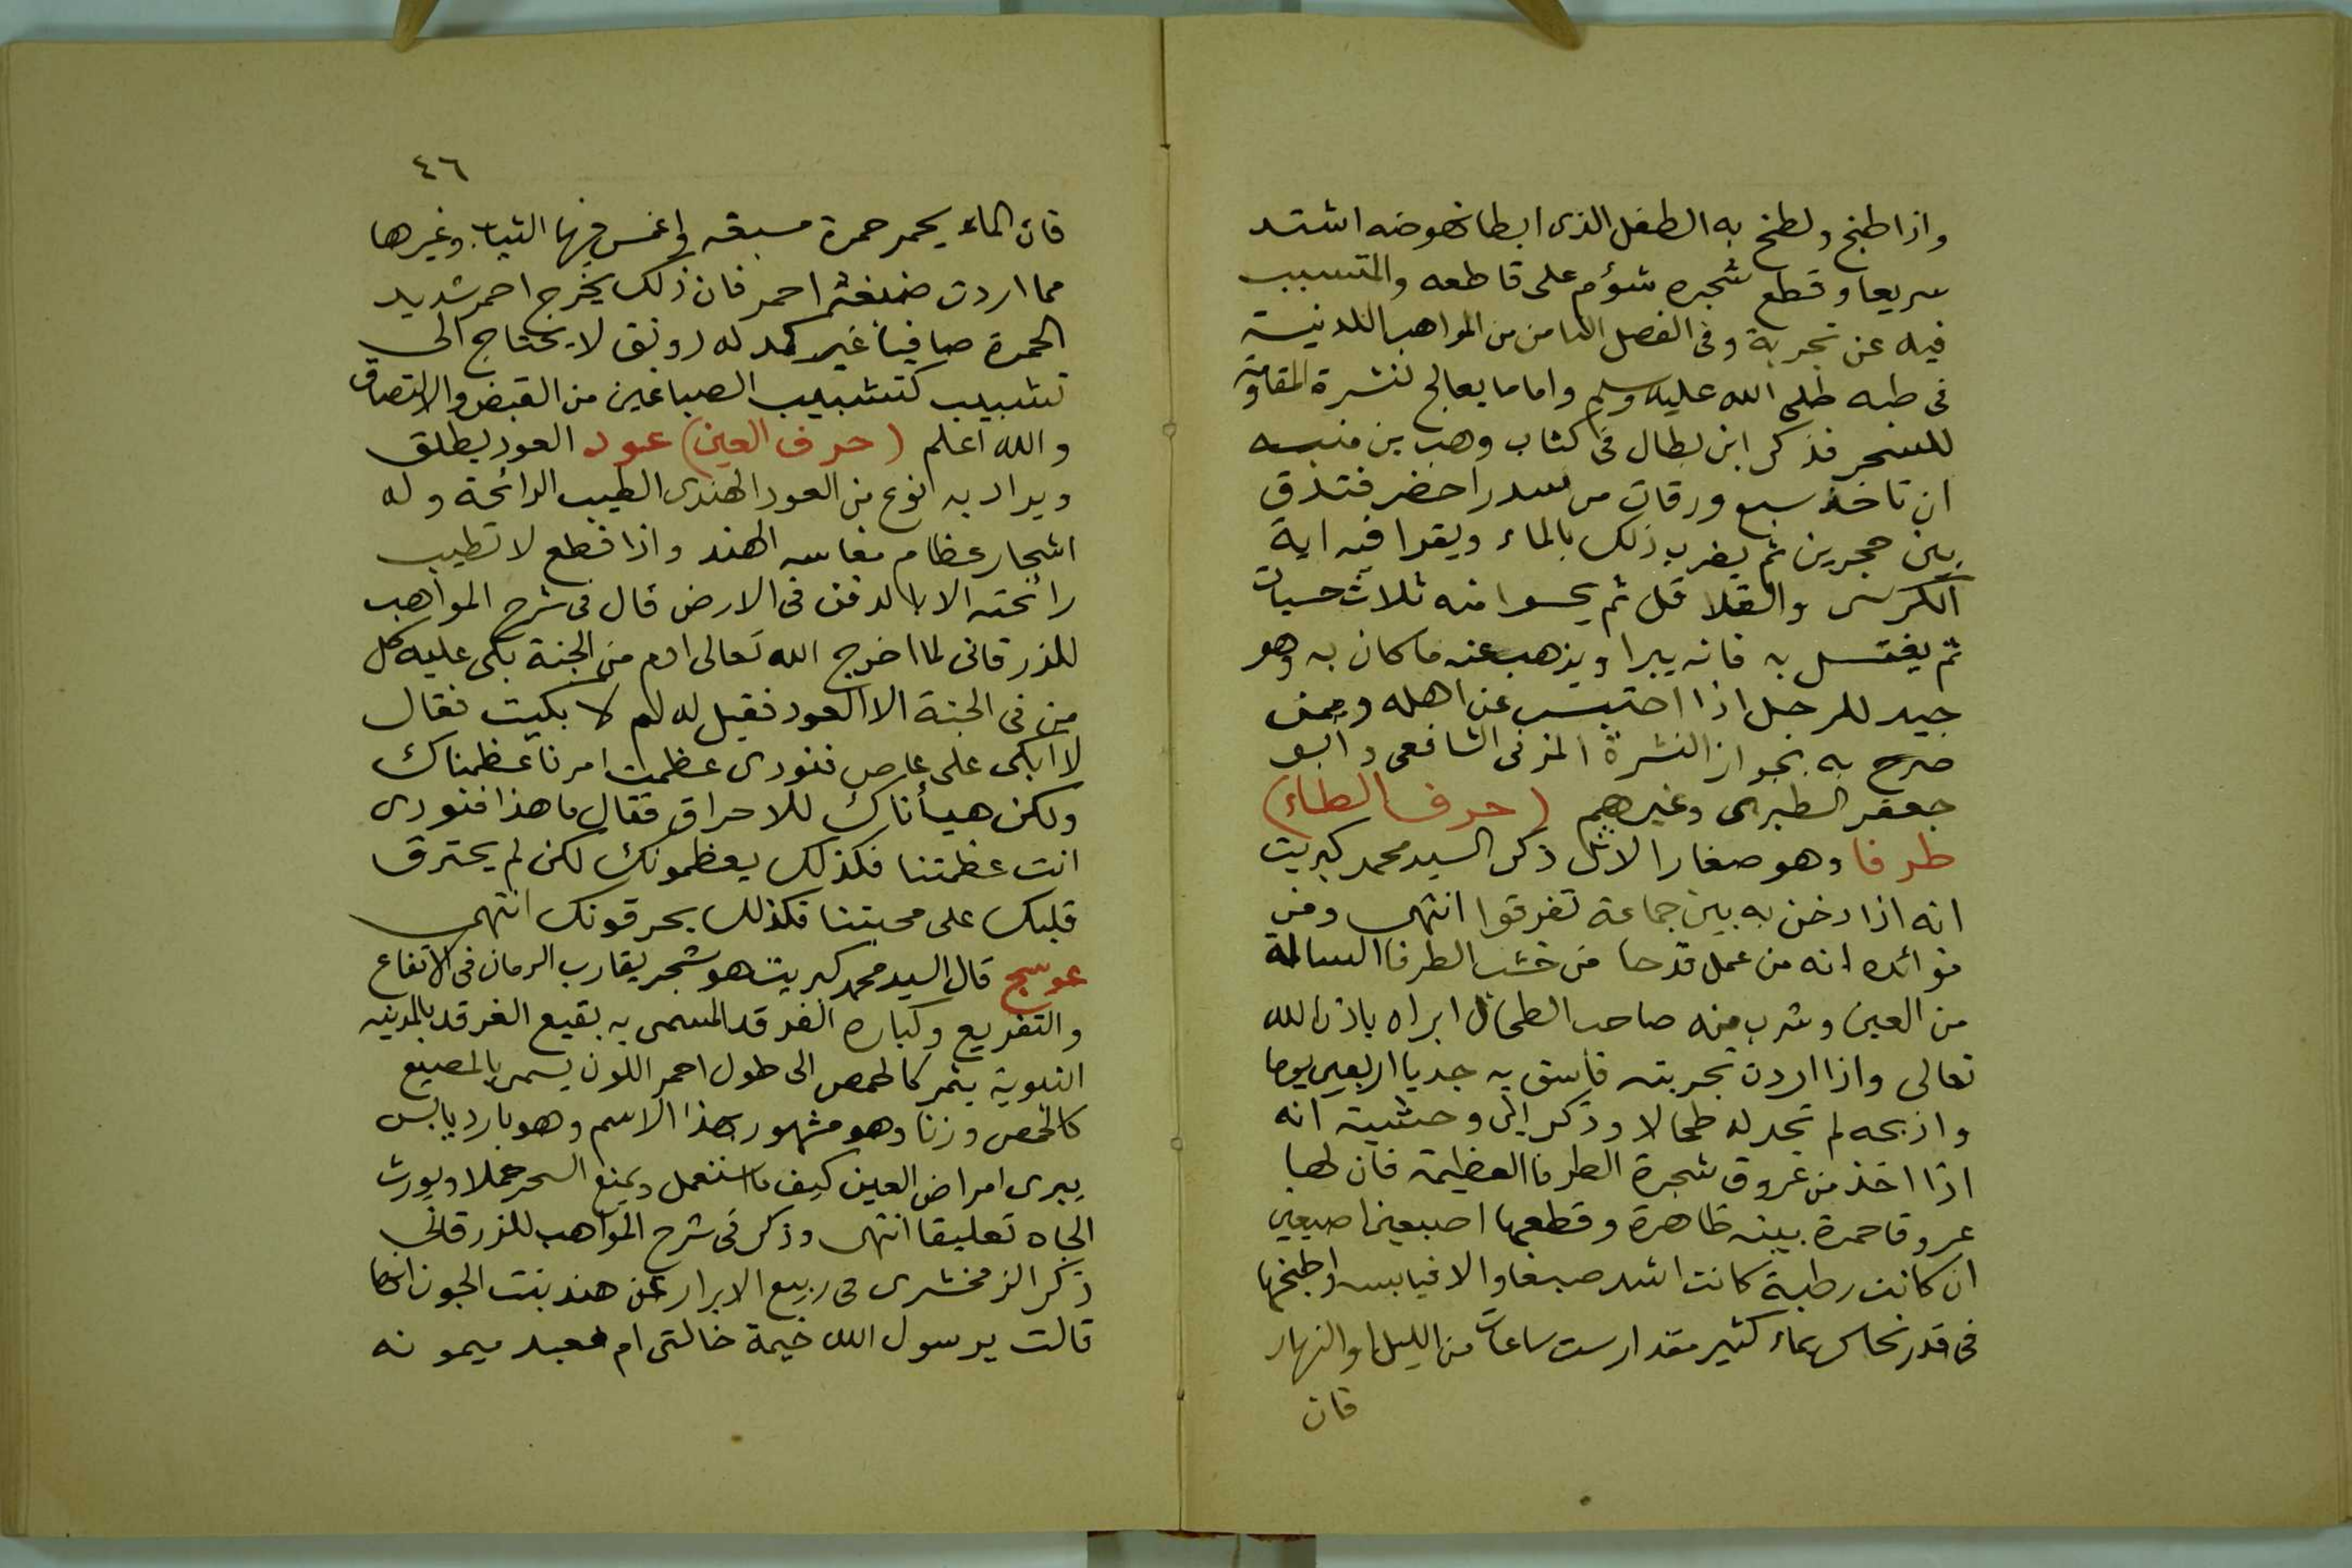 واذا طبخ ولطخ به الطفل الذى ابطا نهوضه اشتد
سريعا وقطع شجره شؤم على قاطعه والمتسبب
فيه عن تجربة وفى الفصل الثامن من المواهب اللدنية
فى طبه صلى الله عليه وسلم واما ما يعالج لنشرة المقاومة
للسحر فذكر ابن بطال فى كتاب وهب بن منبه
ان تاخذ سبع ورقات من سدر اخضر فتدق
بين حجرين ثم يضرب ذلك بالماء ويقرا فيه اية
الكرسى والقلاقل ثم يحسوا منه ثلاث حسيات
ثم يغتسل به فانه يبرا ويذهب عنه ما كان به وهو
جيد للرجل اذا احتبس عن اهله وممن
صرح به بجواز النشرة المزنى الشافعى وابو
جعفر الطبرى وغيرهم (حرف الطاء)
طرفا وهو صغار الاثل ذكر السيد محمد كبريت
انه اذا دخن به بين جماعة تفرقوا انتهى ومن
فوائده انه من عمل قدحا من خشب الطرفا السالمة
من العين وشرب منه صاحب الطحال ابراه باذن الله
تعالى واذا اردت تجربته فاسق به جديا اربعين يوما
واذبحه لم تجد له طحالا وذكر ابن وحشية انه
اذا اخذ من عروق شجرة الطرفا العظيمة فان لها
عروقا حمرة بينه ظاهرة وقطعها اصبعين اصبعين
ان كانت رطبة كانت اشد صبغا والا فيابسه واطبخها
فى قدر نحاس بماء كثير مقدار ست ساعات من الليل او النهار
فان
٤٦
فان الماء يحمر حمرة مسبقه واغمس فيها الثياب وغيرها
مما اردت صبغة احمر فان ذلك يخرج احمر شديد
الحمرة صافيا غير كمد له رونق لا يحتاج الى
تشبيب كتشبيب الصباغين من القبض والالتصاق
والله اعلم (حرف العين) عود العود يطلق
ويراد به انوع من العود الهندى الطيب الرائحة وله
اشجار عظام مغاسه الهند واذا قطع لا تطيب
رائحته الا بالدفن فى الارض قال فى شرح المواهب
للزرقانى لما اخرج الله تعالى ادم من الجنة بكى عليه كل
من فى الجنة الا العود فقيل له لم لا بكيت فقال
لا ابكى على عاص فنودى عظمت امرنا عظمناك
ولكن هيأناك للاحراق فقال ما هذا فنودى
انت عظمتنا فكذلك يعظمونك لكن لم يحترق
قلبك على محبتنا فكذلك يحرقونك انتهى
عوسج قال السيد محمد كبريت هو شجر يقارب الرمان فى الارتفاع
والتفريع وكباره الغرقد المسمى به بقيع الغرقد بالمدينه
النبوية يثمر كالحمص الى طول احمر اللون يسمى بالمصيع
كالحمص وزنا وهو مشهور بهذا الاسم وهو بارد يابس
يبرى امراض العين كيف ما استعمل ويمنع السحر حملا ويورث
الجاه تعليقا انتهى وذكر فى شرح المواهب للزرقانى
ذكر الزمخشرى فى ربيع الابرار عن هند بنت الجون انها
قالت يرسول الله خيمة خالتى ام معبد ميمونه